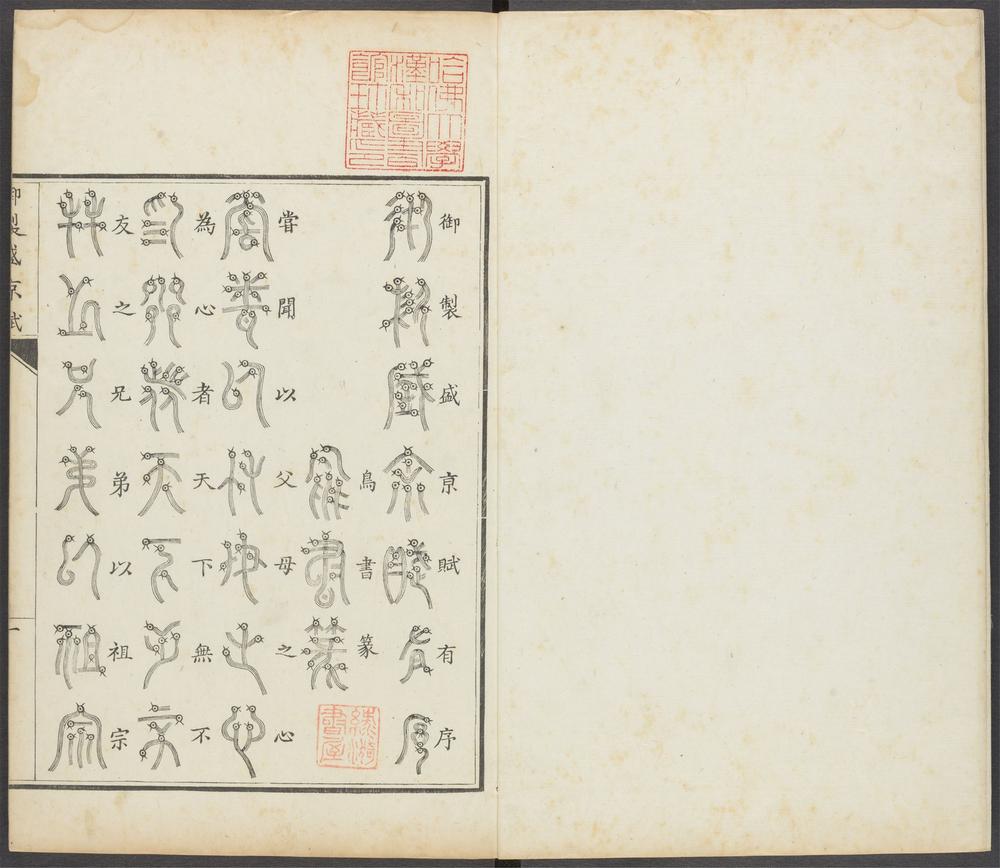 哈佛大學
漢和圖書
館珍藏印
御製盛京賦有序
鳥書篆
嘗聞以父母之心
為心者天下無不
友之兄弟以祖宗
御製盛京賦
一